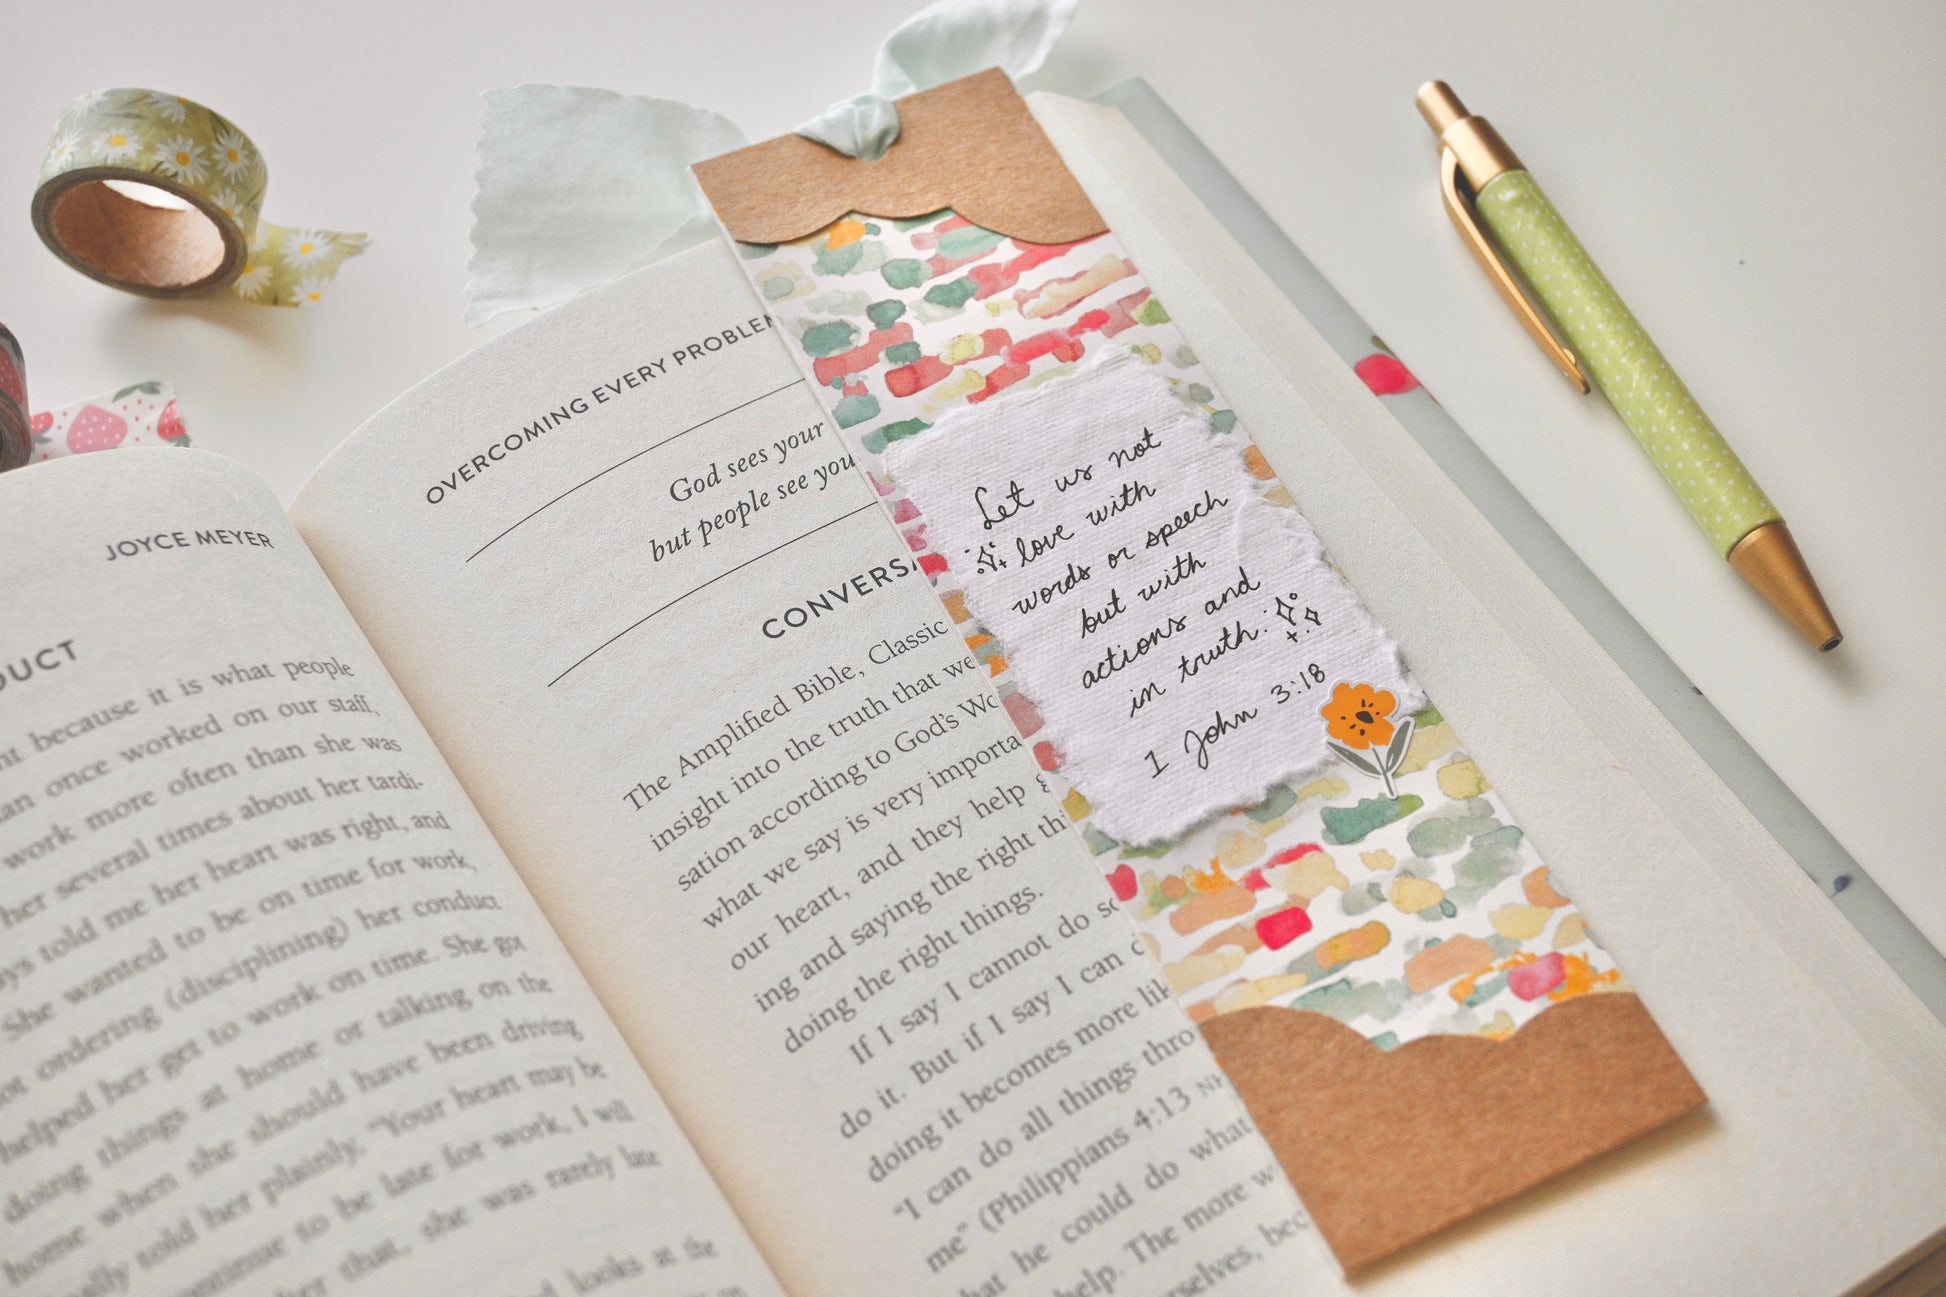 JOYCE MEYER
DUCT
because it is what people
once worked on our staff,
work more often than she was
her several times about her tardi-
told me her heart was right, and
She wanted to be on time for work,
ordering (disciplining) her conduct
helped her get to work on time. She got
doing things at home or talking on the
home when she should have been driving
told her plainly, “Your heart may be
continue to be late for work, I will
that, she was rarely late
looks at the
OVERCOMING EVERY PROBLEM
God sees your
but people see you
CONVERSA
The Amplified Bible, Classic
insight into the truth that we
sation according to God’s Wo
what we say is very importa
our heart, and they help g
ing and saying the right thi
doing the right things.
If I say I cannot do so
do it. But if I say I can d
doing it becomes more lik
“I can do all things thro
me” (Philippians 4:13 NK
that he could do what
help. The more w
rselves, bec
Let us not
love with
words or speech
but with
actions and
in truth.
1 John 3:18